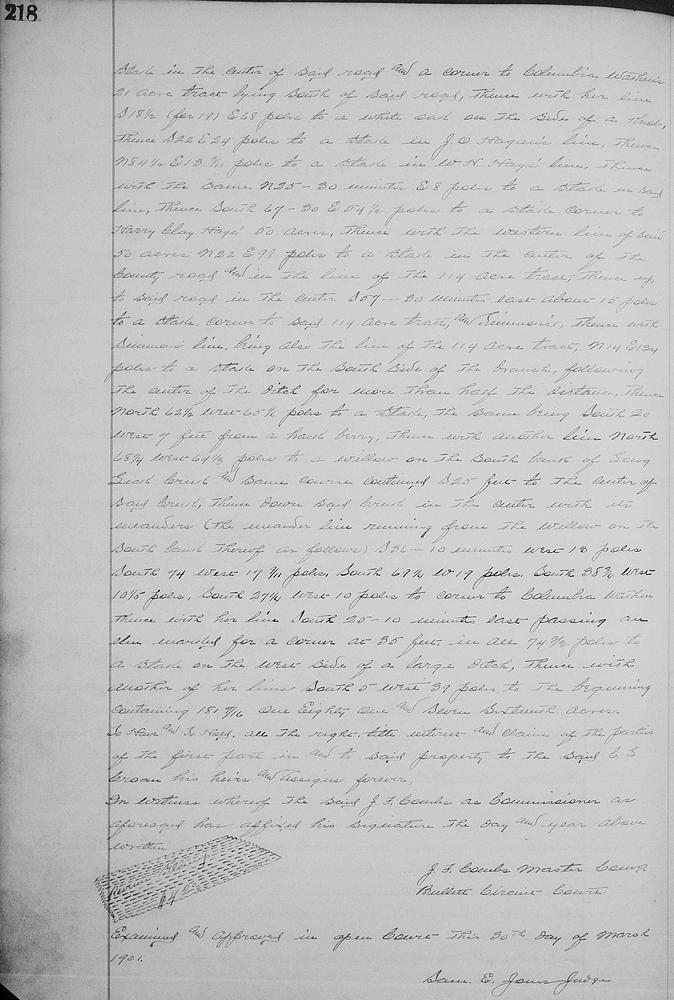 218
Stake in the center of said road and a corner to Columbia Wathen's
21 acre tract lying South of said road, Thence with her line
S 18½ (for 19) E 68 poles to a white oak on the side of a
Thence S22 E 24 poles to a Stake in J. O. Hagan's line, Thence
N84½ E 13 poles to a Stake in W. H. Hays' line, Thence
with the Same N25-30 minutes E 8 poles to a Stake in Said
line, Thence South 67-30 E 54½ poles to a Stake corner to
Harry Clay Hays' 50 acres, Thence with the western line of Said
50 acres N22 E 98 poles to a Stake in the center of the
County road and in the line of the 114 acre tract, Thence up
to said road in the center S57-30 minutes East about 15 poles
to a Stake, corner to Said 114 acre tract, and Simmons', Thence with
Simmons' line, being also the line of the 114 acre tract, N14 E 134
poles to a Stake on the South Side of the branch, following
the center of the ditch for more than half the distance, Thence
North 62½ West 65¾ poles to a Stake, the Same being South 20
West 7 feet from a hack berry, Thence with another line North
68¼ West 64½ poles to a willow on the South bank of Long
Lick Creek and Same course continued S25 feet to the center of
Said Creek, Thence down Said Creek in the center with its
meanders (The meander line running from the willow on the
South bank Thereof as follows) S36-10 minutes West 18 poles
South 74 West 17 poles, South 69¾ W 19 poles, South 38¾ West
10 poles, South 27¼ West 10 poles to corner to Columbia Wathen
Thence with her line South 25-10 minutes East passing an
elm marked for a corner at 35 feet, in all 74 poles to
a Stake on the West Side of a large ditch, Thence with
another of her lines South 5 West 39 poles to the beginning
containing 181 7/16 One Eighty One and Seven Sixteenth Acres.
To Have and To Hold, all the right, title interest and claim of the parties
of the first part in and to Said property to the Said C S
Croan his heirs and Assigns forever.
In witness whereof the Said J. F. Combs as Commissioner as
aforesaid has affixed his Signature the day and year above
written
Revenue Stamp
$4.00
J. F. Combs Master Com'r
Bullitt Circuit Court
Examined and approved in open Court this 30th day of March
1901.
Sam. E. Jones Judge